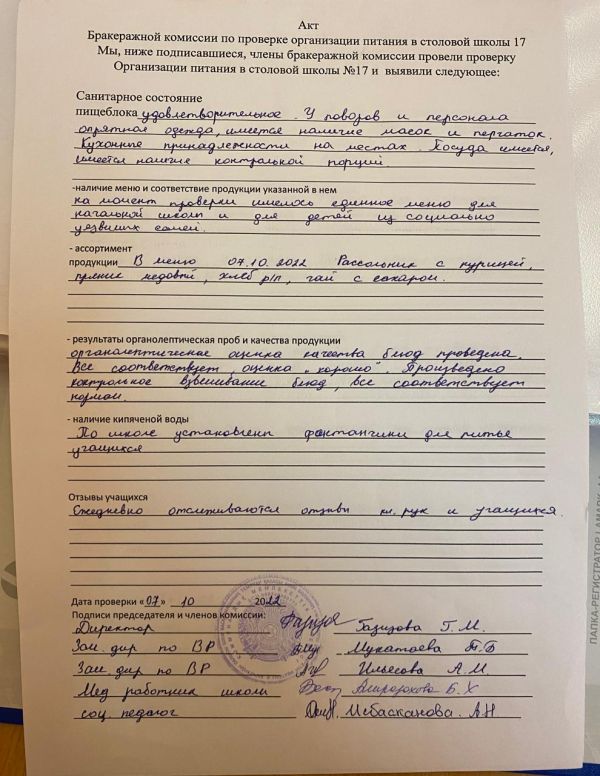 Акт
Бракеражной комиссии по проверке организации питания в столовой школы 17
Мы, ниже подписавшиеся, члены бракеражной комиссии провели проверку
Организации питания в столовой школы №17 и выявили следующее:
Санитарное состояние
пищеблока удовлетворительное. У поворов и персонала
опрятная одежда, имеется наличие масок и перчаток.
Кухонные принадлежности на местах. Посуда имеется,
имеется наличие контрольной порций.
-наличие меню и соответствие продукции указанной в нем
на момент проверки имелось единное меню для
начальной школы и для детей из социально
уязвимых семей.
- ассортимент
продукции В меню 07.10.2022 Рассольник с курицей,
пряник медовый, хлеб р/п, чай с сахаром.
- результаты органолептическая проб и качества продукции
органолептическая оценка качества блюд проведена.
Все соответствует, оценка "хорошо". Произведено
контрольное взвешивание блюд, все соответствует
нормам.
- наличие кипяченой воды
По школе установлены фонтанчики для питье
учащихся
Отзывы учащихся
Ежедневно отслеживаются отзывы кл. рук и учащихся.
Дата проверки «07» 10 2022
Подписи председателя и членов комиссии:
Директор Газизова Г.М.
Зам. дир по ВР Мукатаева Т.Б
Зам. дир по ВР Ильесова А.М.
Мед работник школы Б.Х
соц. педагог Исбасканова. А.Н
ПАПКА-РЕГИСТРАТОР LAMARK